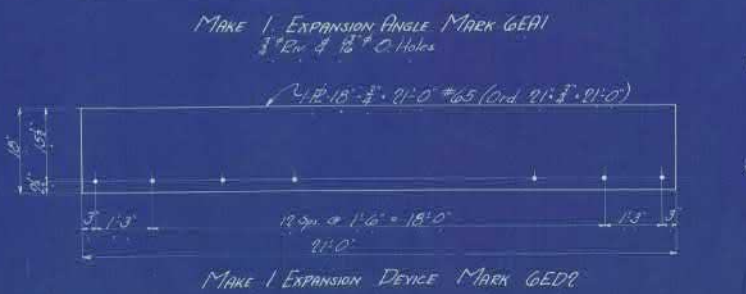 MAKE 1 EXPANSION ANGLE MARK 6EA1
Holes
1-PL 18" × 3/4" × 21'-0" #65 (Ord. 21" × 3/4" × 21'-0")
18"
15½"
2½"
3" 1'-3" 12 Sps. @ 1'-6" = 18'-0" 1'-3" 3"
21'-0"
MAKE 1 EXPANSION DEVICE MARK 6ED2